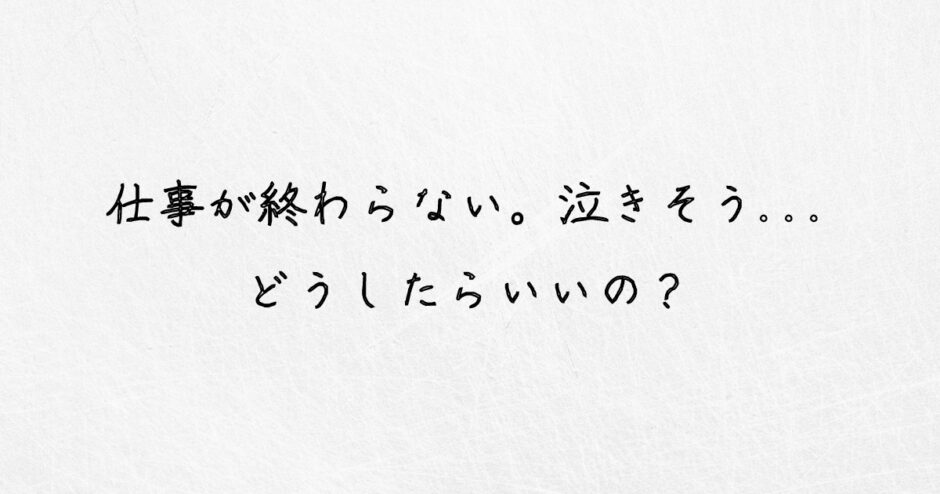 仕事が終わらない。泣きそう...
どうしたらいいの？